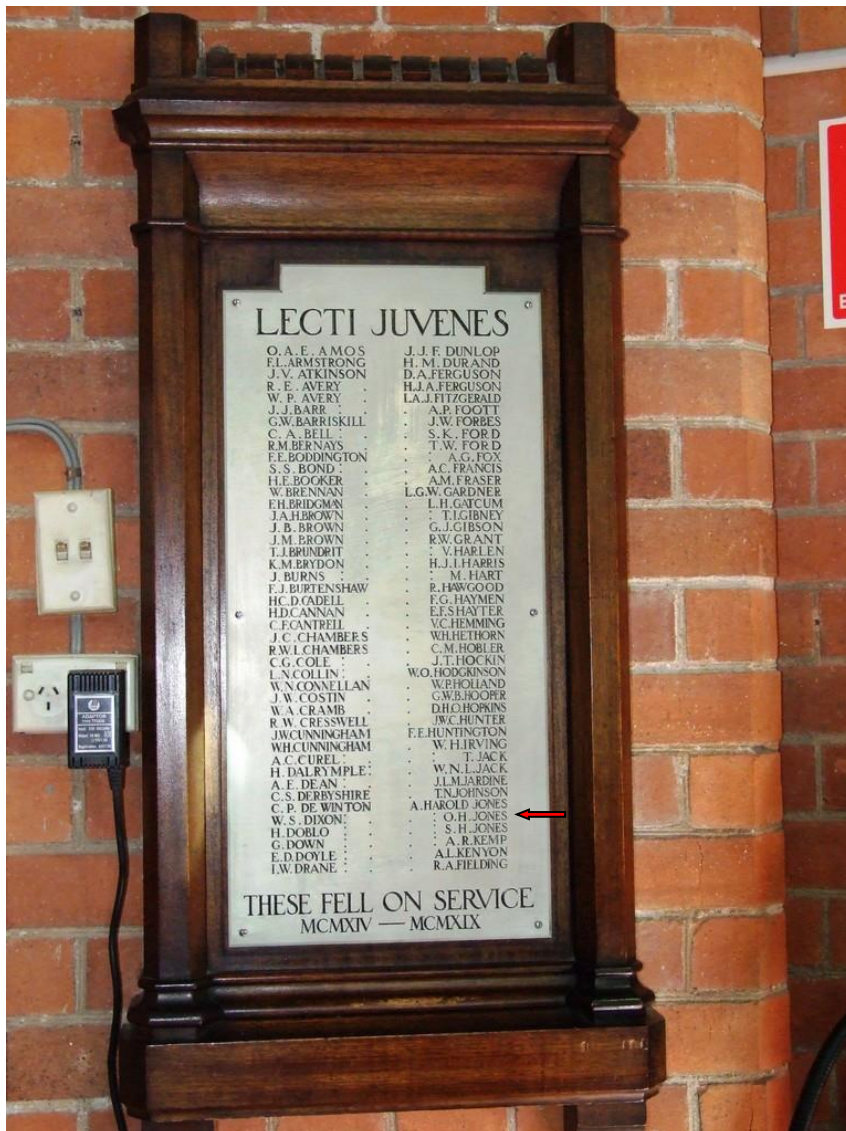 LECTI JUVENES
O.A.E. AMOS
F.L. ARMSTRONG
J.V. ATKINSON
R.E. AVERY
W.P. AVERY
J.J. BARR
G.W. BARRISKILL
C.A. BELL
R.M. BERNAYS
F.E. BODDINGTON
S.S. BOND
H.E. BOOKER
W. BRENNAN
E.H. BRIDGMAN
J.A.H. BROWN
J.B. BROWN
J.M. BROWN
T.J. BRUNDRIT
K.M. BRYDON
J. BURNS
F.J. BURTENSHAW
H.C.D. CADELL
H.D. CANNAN
C.F. CANTRELL
J.C. CHAMBERS
R.W.L. CHAMBERS
C.G. COLE
L.N. COLLIN
W.N. CONNELLAN
J.W. COSTIN
W.A. CRAMB
R.W. CRESSWELL
J.W. CUNNINGHAM
W.H. CUNNINGHAM
A.C. CUREL
H. DALRYMPLE
A.E. DEAN
C.S. DERBYSHIRE
C.P. DE WINTON
W.S. DIXON
H. DOBLO
G. DOWN
E.D. DOYLE
I.W. DRANE
J.J.F. DUNLOP
H.M. DURAND
D.A. FERGUSON
H.J.A. FERGUSON
L.A.J. FITZGERALD
A.P. FOOTT
J.W. FORBES
S.K. FORD
T.W. FORD
A.G. FOX
A.C. FRANCIS
A.M. FRASER
L.G.W. GARDNER
L.H. GATCUM
T.I. GIBNEY
G.J. GIBSON
R.W. GRANT
V. HARLEN
H.J.I. HARRIS
M. HART
R. HAWGOOD
F.G. HAYMEN
E.F.S HAYTER
V.C. HEMMING
W.H. HETHORN
C.M. HOBLER
J.T. HOCKIN
W.O. HODGKINSON
W.P. HOLLAND
G.W.B. HOOPER
D.H.O. HOPKINS
J.W.C. HUNTER
F.E. HUNTINGTON
W.H. IRVING
T. JACK
W.N.L. JACK
J.L.M. JARDINE
T.N. JOHNSON
A. HAROLD JONES
O.H. JONES
S.H. JONES
A.R. KEMP
A.L. KENYON
R.A. FIELDING
THESE FELL ON SERVICE
MCMXIV — MCMXIX
ADAPTOR